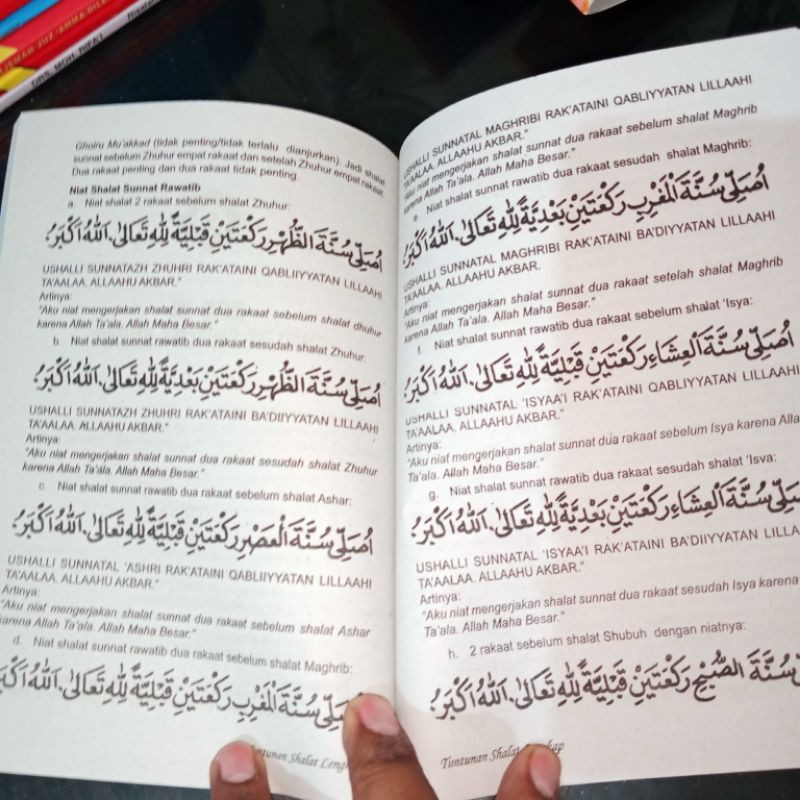 JUZ 'AMMA
DRS. MOH. RIFA'I
Ghoiru Mu'akkad (tidak penting/tidak terlalu dianjurkan). Jadi shalat
sunnat sebelum Zhuhur empat rakaat dan setelah Zhuhur empat rakaat.
Dua rakaat penting dan dua rakaat tidak penting.
Niat Shalat Sunnat Rawatib
a. Niat shalat 2 rakaat sebelum shalat Zhuhur:
اُصَلِّى سُنَّةَ الظُّهْرِ رَكْعَتَيْنِ قَبْلِيَّةً لِلّٰهِ تَعَالٰى. اَللهُ اَكْبَرُ:
USHALLI SUNNATAZH ZHUHRI RAK'ATAINI QABLIIYYATAN LILLAAHI
TA'AALAA. ALLAAHU AKBAR."
Artinya:
"Aku niat mengerjakan shalat sunnat dua rakaat sebelum shalat dhuhur
karena Allah Ta'ala. Allah Maha Besar."
b. Niat shalat sunnat rawatib dua rakaat sesudah shalat Zhuhur:
اُصَلِّى سُنَّةَ الظُّهْرِ رَكْعَتَيْنِ بَعْدِيَّةً لِلّٰهِ تَعَالٰى. اَللهُ اَكْبَرُ:
USHALLI SUNNATAZH ZHUHRI RAK'ATAINI BA'DIIYYATAN LILLAAHI
TA'AALAA. ALLAAHU AKBAR."
Artinya:
"Aku niat mengerjakan shalat sunnat dua rakaat sesudah shalat Zhuhur
karena Allah Ta'ala. Allah Maha Besar."
c. Niat shalat sunnat rawatib dua rakaat sebelum shalat Ashar:
اُصَلِّى سُنَّةَ الْعَصْرِ رَكْعَتَيْنِ قَبْلِيَّةً لِلّٰهِ تَعَالٰى. اَللهُ اَكْبَرُ:
USHALLI SUNNATAL 'ASHRI RAK'ATAINI QABLIIYYATAN LILLAAHI
TA'AALAA. ALLAAHU AKBAR."
Artinya:
"Aku niat mengerjakan shalat sunnat dua rakaat sebelum shalat Ashar
karena Allah Ta'ala. Allah Maha Besar."
d. Niat shalat sunnat rawatib dua rakaat sebelum shalat Maghrib:
سُنَّةَ الْمَغْرِبِ رَكْعَتَيْنِ قَبْلِيَّةً لِلّٰهِ تَعَالٰى. اَللهُ اَكْبَرُ
Shalat
USHALLI SUNNATAL MAGHRIBI RAK'ATAINI QABLIYYATAN LILLAAHI
TA'AALAA. ALLAAHU AKBAR."
"Aku niat mengerjakan shalat sunnat dua rakaat sebelum shalat Maghrib
karena Allah Ta'ala. Allah Maha Besar."
e. Niat shalat sunnat rawatib dua rakaat sesudah shalat Maghrib:
اُصَلِّى سُنَّةَ الْمَغْرِبِ رَكْعَتَيْنِ بَعْدِيَّةً لِلّٰهِ تَعَالٰى. اَللهُ اَكْبَرُ:
USHALLI SUNNATAL MAGHRIBI RAK'ATAINI BA'DIYYATAN LILLAAHI
TA'AALAA. ALLAAHU AKBAR.
Artinya:
"Aku niat mengerjakan shalat sunnat dua rakaat setelah shalat Maghrib
karena Allah Ta'ala. Allah Maha Besar."
f. Niat shalat sunnat rawatib dua rakaat sebelum shalat 'Isya:
اُصَلِّى سُنَّةَ الْعِشَاءِ رَكْعَتَيْنِ قَبْلِيَّةً لِلّٰهِ تَعَالٰى. اَللهُ اَكْبَرُ:
USHALLI SUNNATAL 'ISYAA'I RAK'ATAINI QABLIYYATAN LILLAAHI
TA'AALAA. ALLAAHU AKBAR."
Artinya:
"Aku niat mengerjakan shalat sunnat dua rakaat sebelum Isya karena Alla
Ta'ala. Allah Maha Besar."
g. Niat shalat sunnat rawatib dua rakaat sesudah shalat 'Isya:
سُنَّةَ الْعِشَاءِ رَكْعَتَيْنِ بَعْدِيَّةً لِلّٰهِ تَعَالٰى. اَللهُ اَكْبَرُ:
USHALLI SUNNATAL 'ISYAA'I RAK'ATAINI BA'DIIYYATAN LILLA
TA'AALAA. ALLAAHU AKBAR."
Artinya:
"Aku niat mengerjakan shalat sunnat dua rakaat sesudah Isya karena
Ta'ala. Allah Maha Besar."
h. 2 rakaat sebelum shalat Shubuh dengan niatnya:
سُنَّةَ الصُّبْحِ رَكْعَتَيْنِ قَبْلِيَّةً لِلّٰهِ تَعَالٰى. اَللهُ اَكْبَرُ:
Tuntunan Shalat